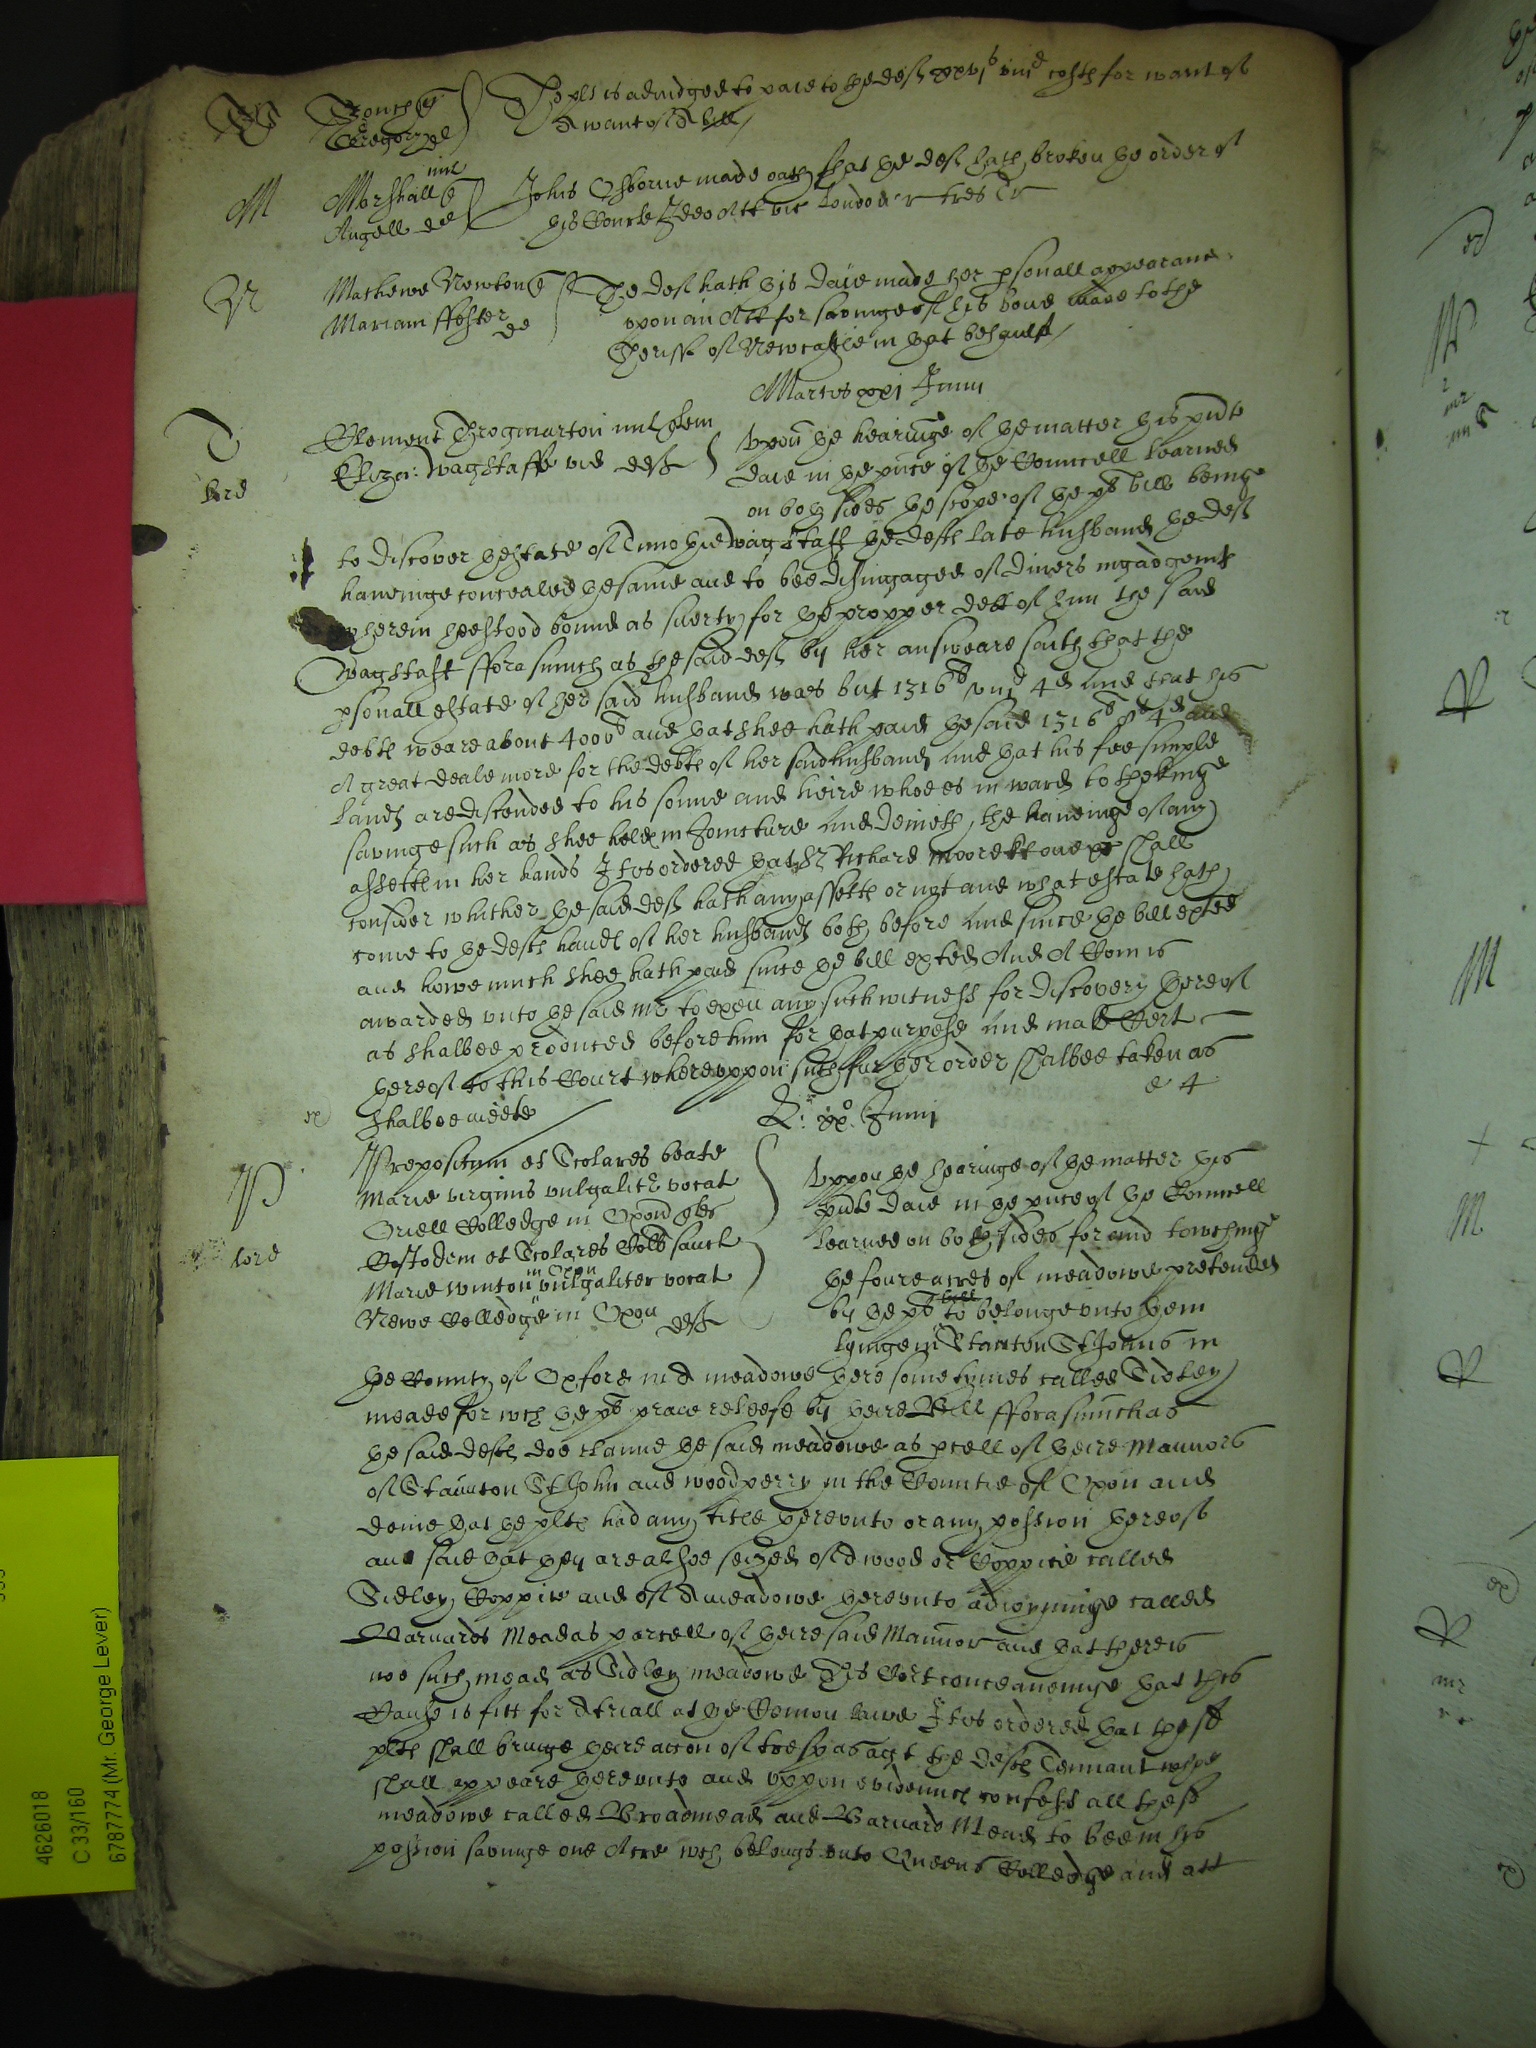 The plt is adiudged to paie to the deft xxvjs viijd costs for want of
a want of a bill
Gregory de
M
Marshall
Angell de
John Osborne made oath that the deft hath broken the order of
this Courte Ideo Att vic London
Mathewe Newton
Mariam ffoster de
The deft hath this daie made her psonall appearance
vpon an Att for savinge of his bond made to the
Sheriff of Newcastle in that behaulf
Martis xxj Junii
T
Clement Throgmarton mil quer
Eliza: Wagstaffe vid deft
lord
Vpon the hearinge of the matter this pnte
daie in the pnce of the Councell learned
on both sides the scope of the pts bill beinge
to discover the state of Timothie Wagstaff the defts late husband the deft
haveinge concealed the same and to bee disingaged of divers ingadgemts
wherein hee stood bound as suerty for the propper debt of him the said
Wagstaff fforasmuch as the said deft by her answeare saith that the
psonall estate of her said husband was but 1316 4d And that his
debts weare about 4000 and that shee hath paid the said 1316 4d and
A great deale more for the debts of her said husband And that his fee simple
lands are discended to his sonne and heire whoe is in ward to the Kinge
savinge such as shee held in Joincture And denieth the haveinge of any
assetts in her hands It is ordered that Sr Richard Moore shall
consider whither the said deft hath any assetts or not and what estate hath
come to the defts hands of her husbands both before And since the bill exhted
and howe much shee hath paid since the bill exhted And A Com is
awarded vnto the said mr to exam any such witness for discovery thereof
as shalbee produced before him for that purpose And make Cert
thereof to this Court wherevppon such further order shalbee taken as
shalbee meete
xx Junij
P
Prepositum et Scolares beate
Marie virginis vulgalitr vocat
Oriell Colledge in Oxond
Custodem et Scolares Coll sancte
Marie Winton in Oxon vulgaliter vocat
Newe Colledge in Oxon deft
lord
Vppon the hearinge of the matter this
pnte daie in the pnce of the Councell
learned on both sides for and towchinge
the foure acres of meadowe pretended
by the pts bill to belonge vnto them
lyinge in Stanton St Johns in
the County of Oxford in A meadowe there sometymes called Sidley
meade for wch the pts praie releefe by theire Bill fforasmuch as
the said defts doe clayme the said meadowe as pcell of theire Mannors
of Staunton St John and woodperry in the Countie of Oxon and
denie that the plts had any title therevnto or any possion thereof
and said that they are alsoe seized of A wood or Coppice called
Sidley Coppice and of A meadowe therevnto adioyninge called
Barnards Mead as parcell of theire said Mannor and that there is
noe such mead as Sidley meadowe This Cort conceaveinge that this
Cause is fitt for A triall at the Comon lawe It is ordered that these
plts shall bringe theire accon of trespas agt the defts Tennant whoe
shall appeare therevnto and vppon evidence confess all these
meadowe called Broadmead and Barnard Mead to bee in his
possion savinge one Acre wch belongs vnto Queens Colledge and att
4626018
C 33/160
6787774 (Mr. George Lever)